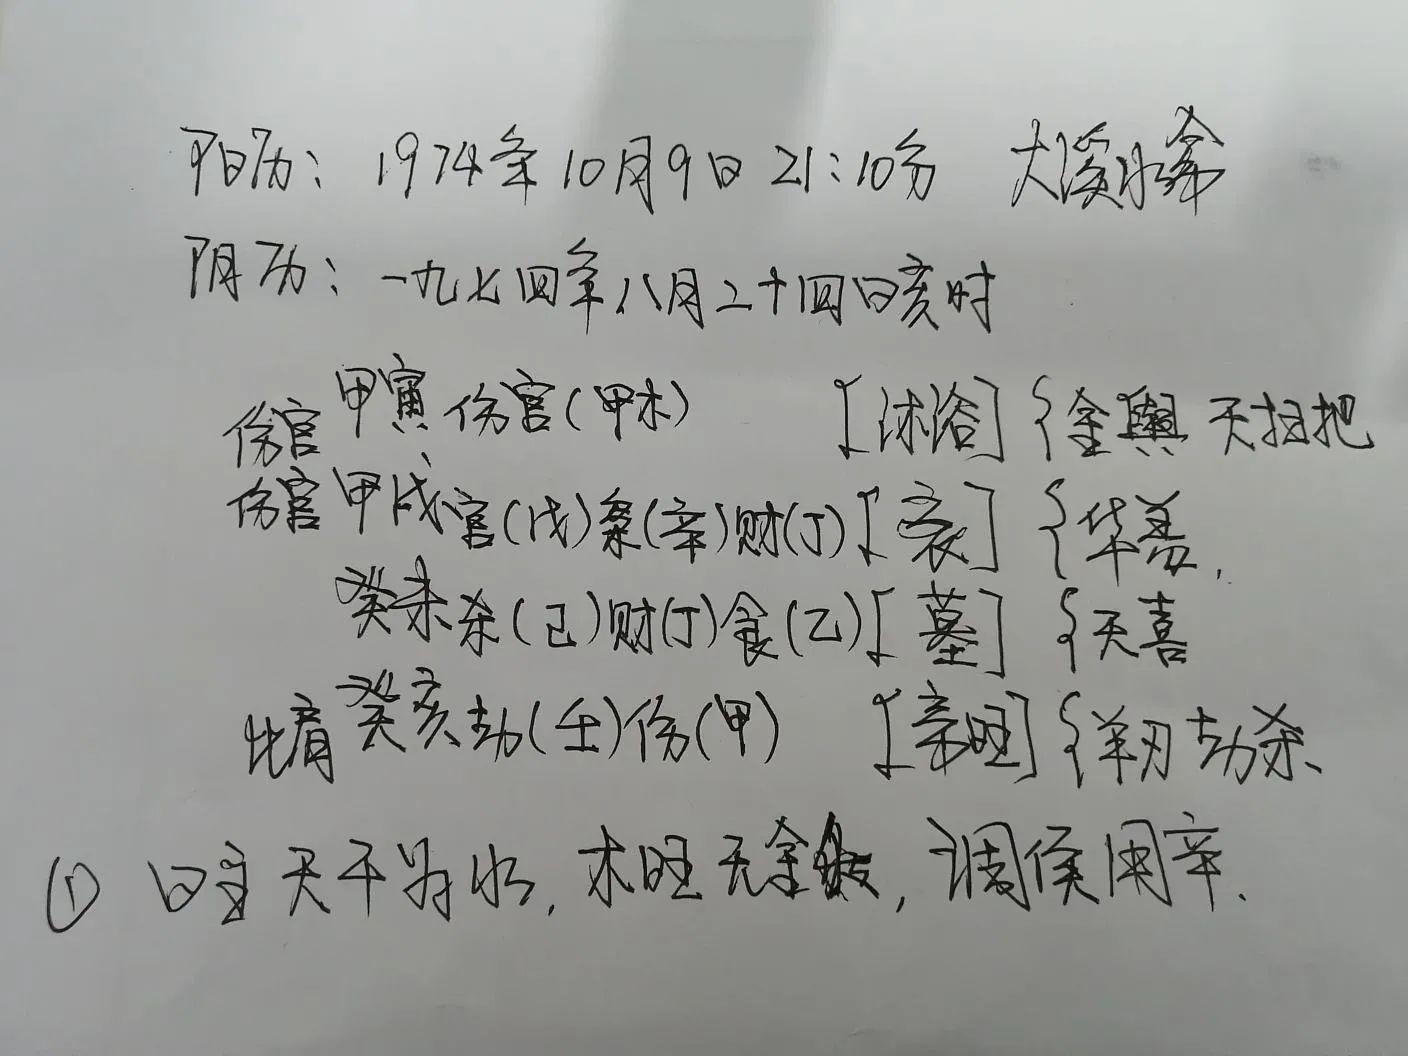 阳历：1974年10月9日21:10分 大溪水命
阴历：一九七四年八月二十四日亥时
伤官 甲寅 伤官(甲木) [沐浴] {金舆 天扫把
伤官 甲戌 官(戊)枭(辛)财(丁) [衰] {华盖.
癸未 杀(己)财(丁)食(乙) [墓] {天喜
比肩 癸亥 劫(壬)伤(甲) [帝旺] {羊刃 劫杀、
① 日主天干为水, 木旺无金, 调侯用辛.